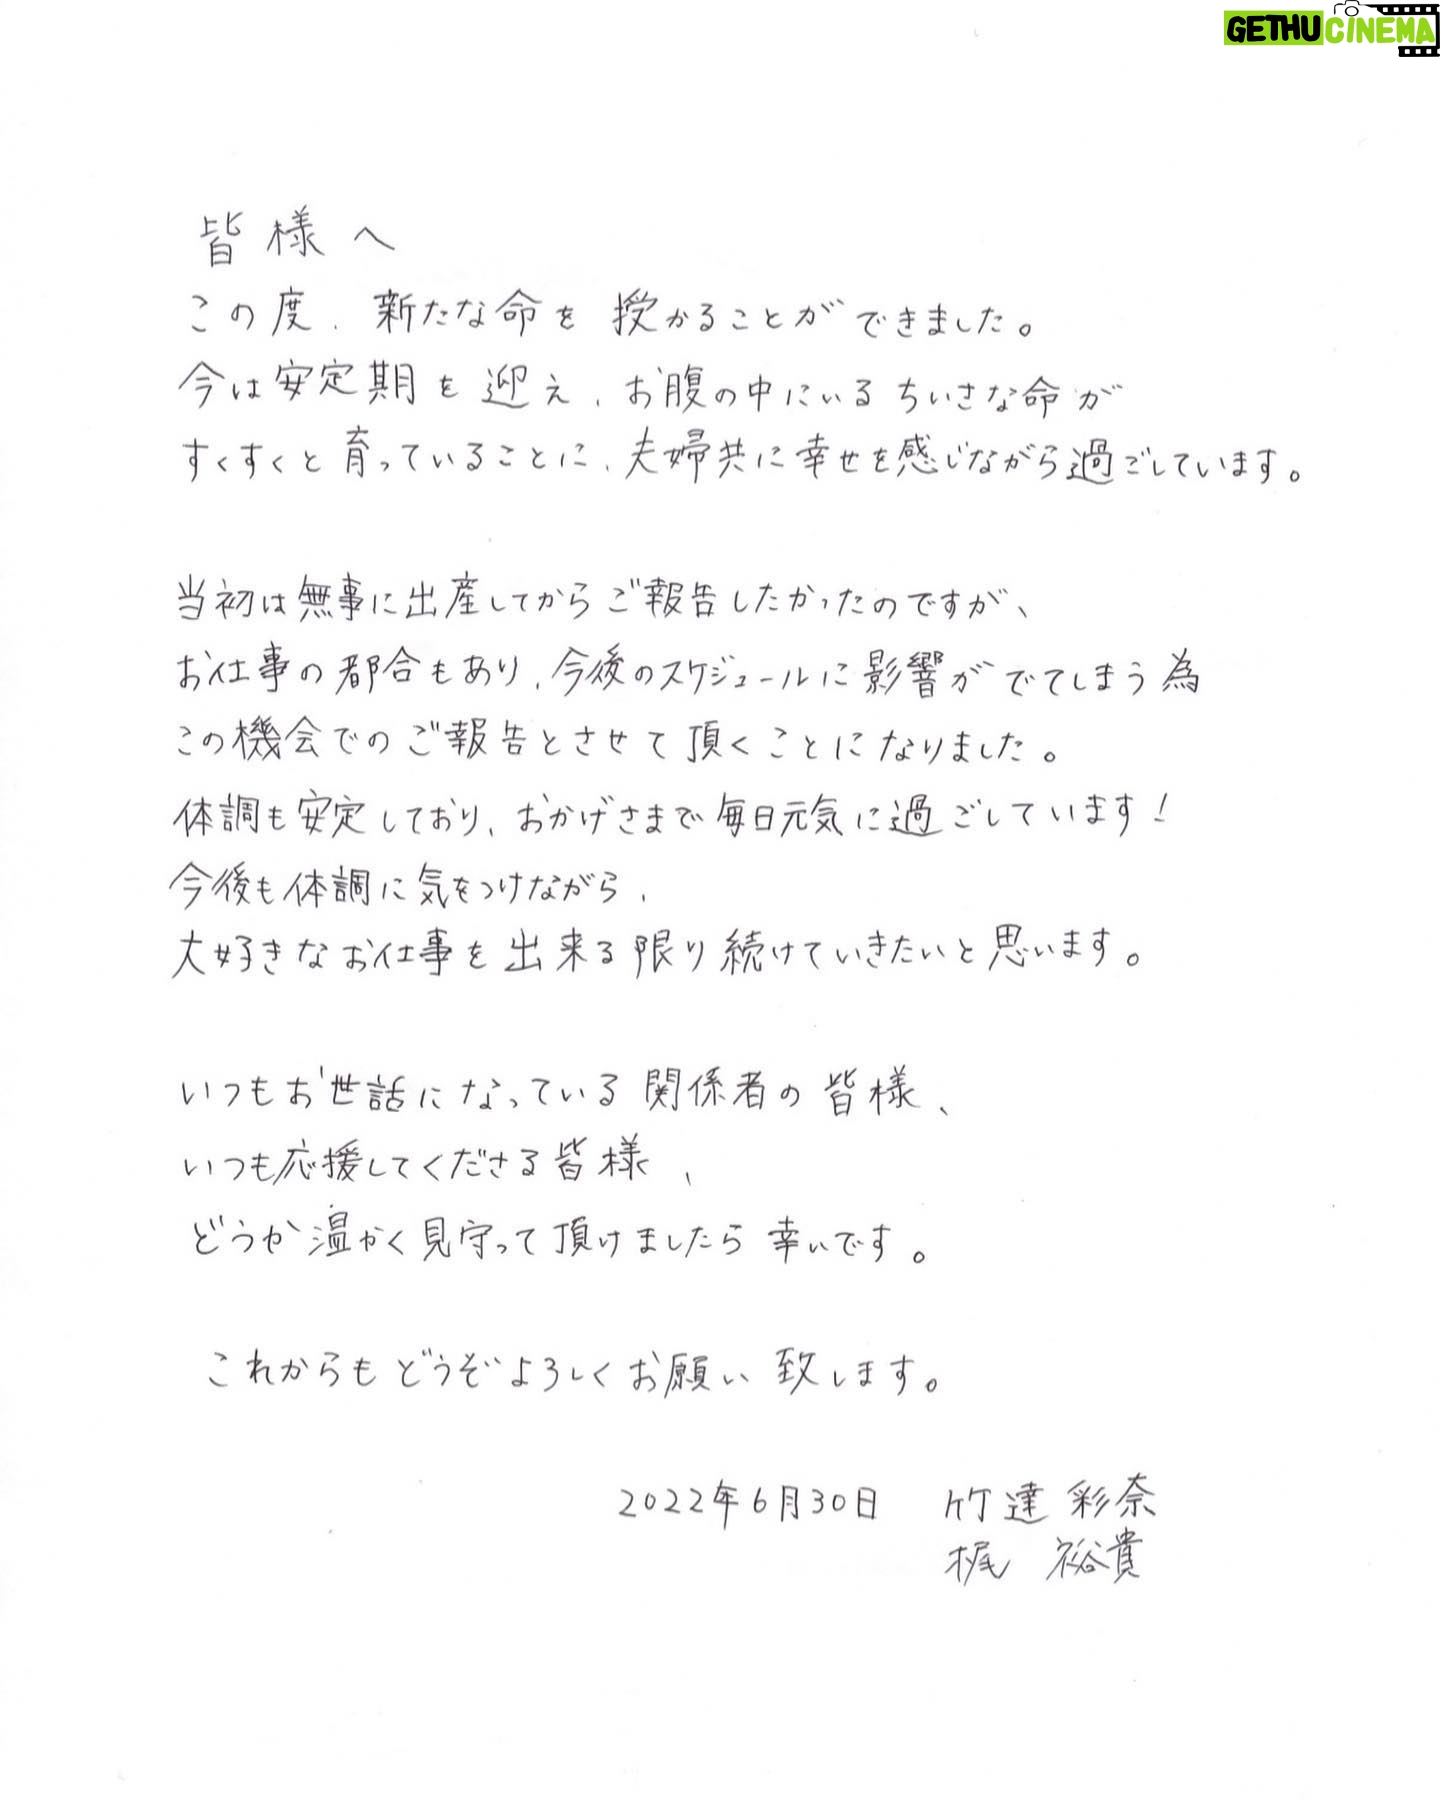 GETHUCINEMA
皆様へ
この度、新たな命を授かることができました。
今は安定期を迎え、お腹の中にいるちいさな命が
すくすくと育っていることに、夫婦共に幸せを感じながら過ごしています。
当初は無事に出産してからご報告したかったのですが、
お仕事の都合もあり、今後のスケジュールに影響がでてしまう為
この機会でのご報告とさせて頂くことになりました。
体調も安定しており、おかげさまで毎日元気に過ごしています!
今後も体調に気をつけながら、
大好きなお仕事を出来る限り続けていきたいと思います。
いつもお世話になっている関係者の皆様、
いつも応援してくださる皆様、
どうか温かく見守って頂けましたら幸いです。
これからもどうぞよろしくお願い致します。
2022年6月30日 竹達 彩奈
梶 裕貴